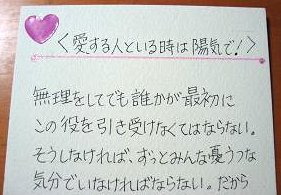 〈愛する人といる時は陽気で！〉
無理をしてでも誰かが最初に
この役を引き受けなくてはならない。
そうしなければ、ずっとみんな憂うつな
気分でいなければならない。だから